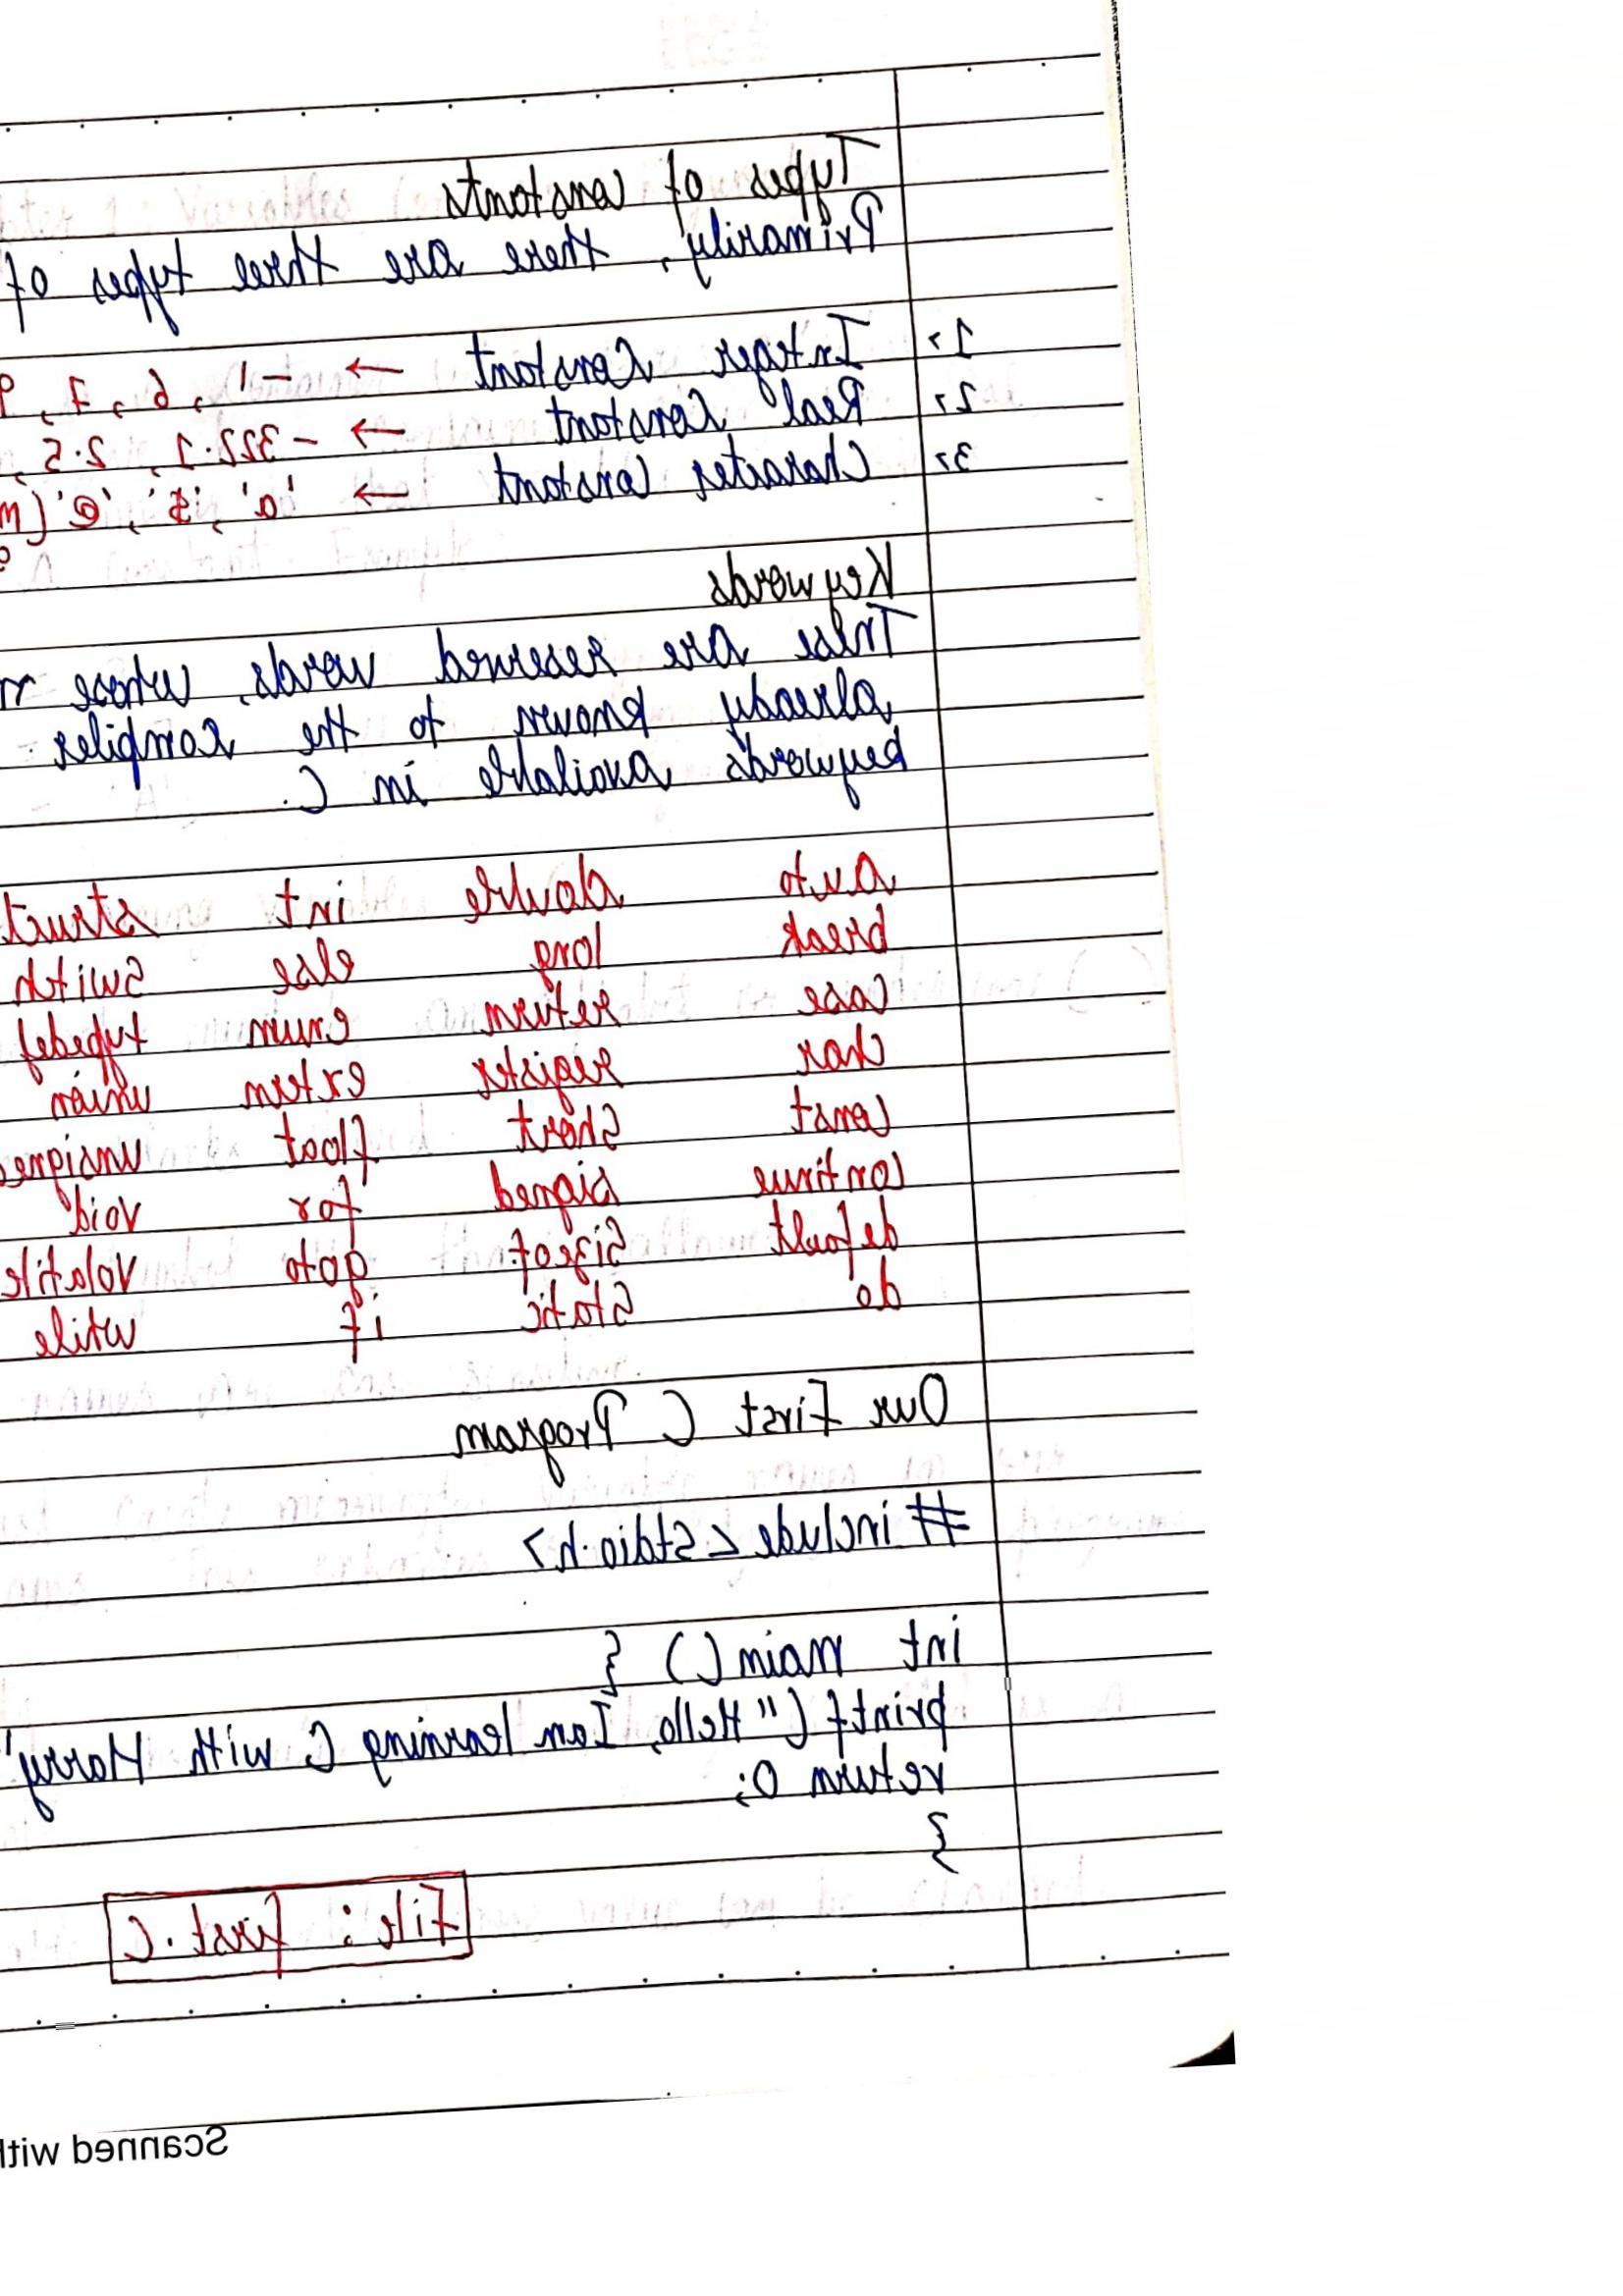 Types of constants
Primarily, there are three types of
1> Integer Constant → -1, 6, 7, 9
2> Real Constant → -322.1, 2.5,
3> Character Constant → 'a', '$', '@' (m
Keywords
These are reserved words, whose m
already known to the compiler
keywords available in C.
auto double int struct
break long else switch
case return enum typedef
char register extern union
const short float unsigne
continue signed for void
default sizeof goto volatile
do static if while
Our First C Program
# include <stdio.h>
int main() {
printf ("Hello, I am learning C with Harry"
return 0;
}
File : first.c
Scanned with